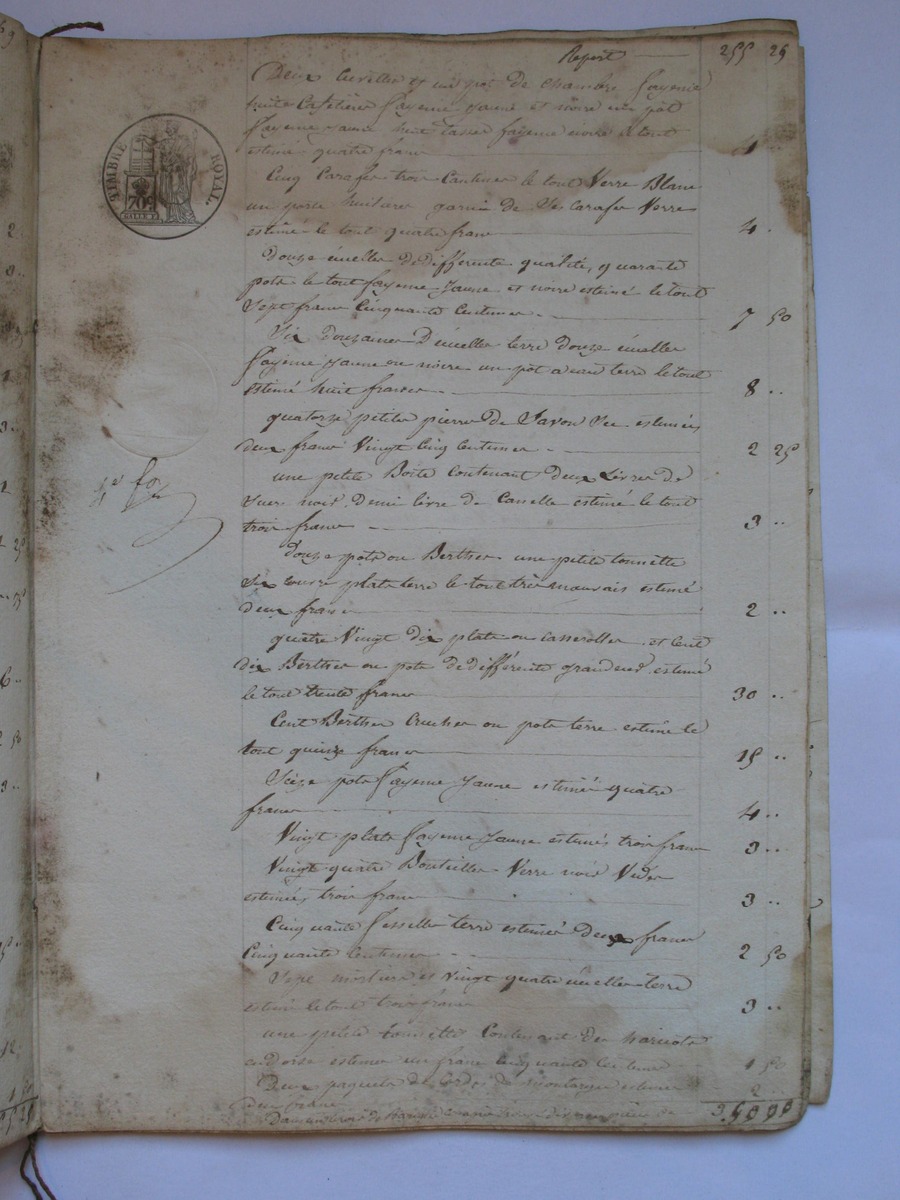 Report 255 25
Deux cuvettes et un pot de chambre fayence
huit Cafetieres fayence jaune et noire un pot
fayence jaune huit tasses fayence noire le tout
estimé quatre francs 4
TIMBRE ROYAL.
709
Cinq Carafes trois Cantines le tout Verre Blanc
un porte huilier garni de Ses Carafes Verre
estimé le tout quatre francs 4 .
Douze écuelles de différente qualité, quarante
pots le tout fayence jaune et noire estimé le tout
Sept francs Cinquante Centimes 7 50
Six Douzaines d'écuelles terre Douze écuelles
fayence jaune ou noire un pot a eau terre le tout
estimé huit francs 8 ..
quatorze petites pierres de Savon Sec estimées
deux francs Vingt Cinq Centimes 2 25
une petite Boete Contenant Deux Livres de
Sucre noir Demi livre de Canelle estimé le tout
trois francs 3 ..
Douze pots ou Berthes une petite tonnette
Six plats terre le tout très mauvais estimé
deux francs 2 ..
quatre Vingt dix plats ou Casserolles et Cent
dix Berthes ou pots de différente grandeur estimé
le tout trente francs 30 ..
Cent Berthes Cruches ou pots terre estimé le
tout quinze francs 15 ..
Seize pots fayence jaune estimés quatre
francs 4 ..
Vingt plats fayence jaune estimés trois francs 3 ..
Vingt quatre Bouteilles Verre noir Vides
estimées trois francs 3 ..
Cinquante fesselles terre estimées Deux francs
Cinquante Centimes 2 50
Sept et Vingt quatre écuelles terre
estimé le tout trois francs 3 ..
une petite tonnette Contenant des haricots
estimes un franc Cinquante Centimes 1 50
Deux paquets de Cordes de estimes
deux francs 2 ..